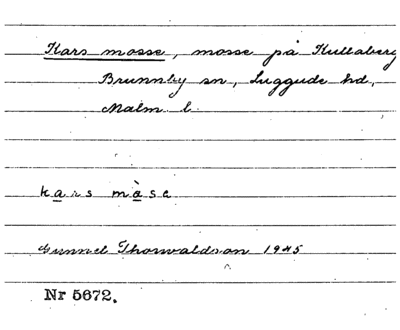 Kars mosse, mosse på Kullaberg
Brunnby sn, Luggude hd,
Malm l.
kars måse
Gunnel Thorwaldson 1945
Nr 5672.